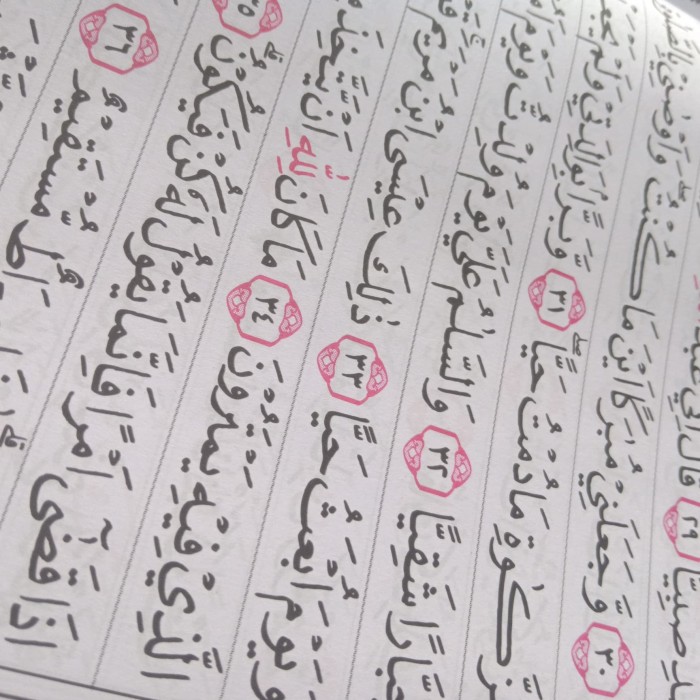 صَبِيًّا ٢٩ قَالَ اِنِّيْ
٣٠ وَّجَعَلَنِيْ مُبٰرَكًا اَيْنَ مَا كُنْتُ وَاَوْصٰنِيْ
مَا دُمْتُ حَيًّا ٣١ وَّبَرًّۢا بِوَالِدَتِيْ وَلَمْ
شَقِيًّا ٣٢ وَالسَّلٰمُ عَلَيَّ يَوْمَ وُلِدْتُّ وَيَوْمَ
وَيَوْمَ اُبْعَثُ حَيًّا ٣٣ ذٰلِكَ عِيْسَى ابْنُ مَرْيَمَ
الَّذِيْ فِيْهِ يَمْتَرُوْنَ ٣٤ مَا كَانَ لِلّٰهِ اَنْ يَّتَّخِذَ
اِذَا قَضٰٓى اَمْرًا فَاِنَّمَا يَقُوْلُ لَهٗ كُنْ فَيَكُوْنُ ٣٥
مُّسْتَقِيْمٌ ٣٦